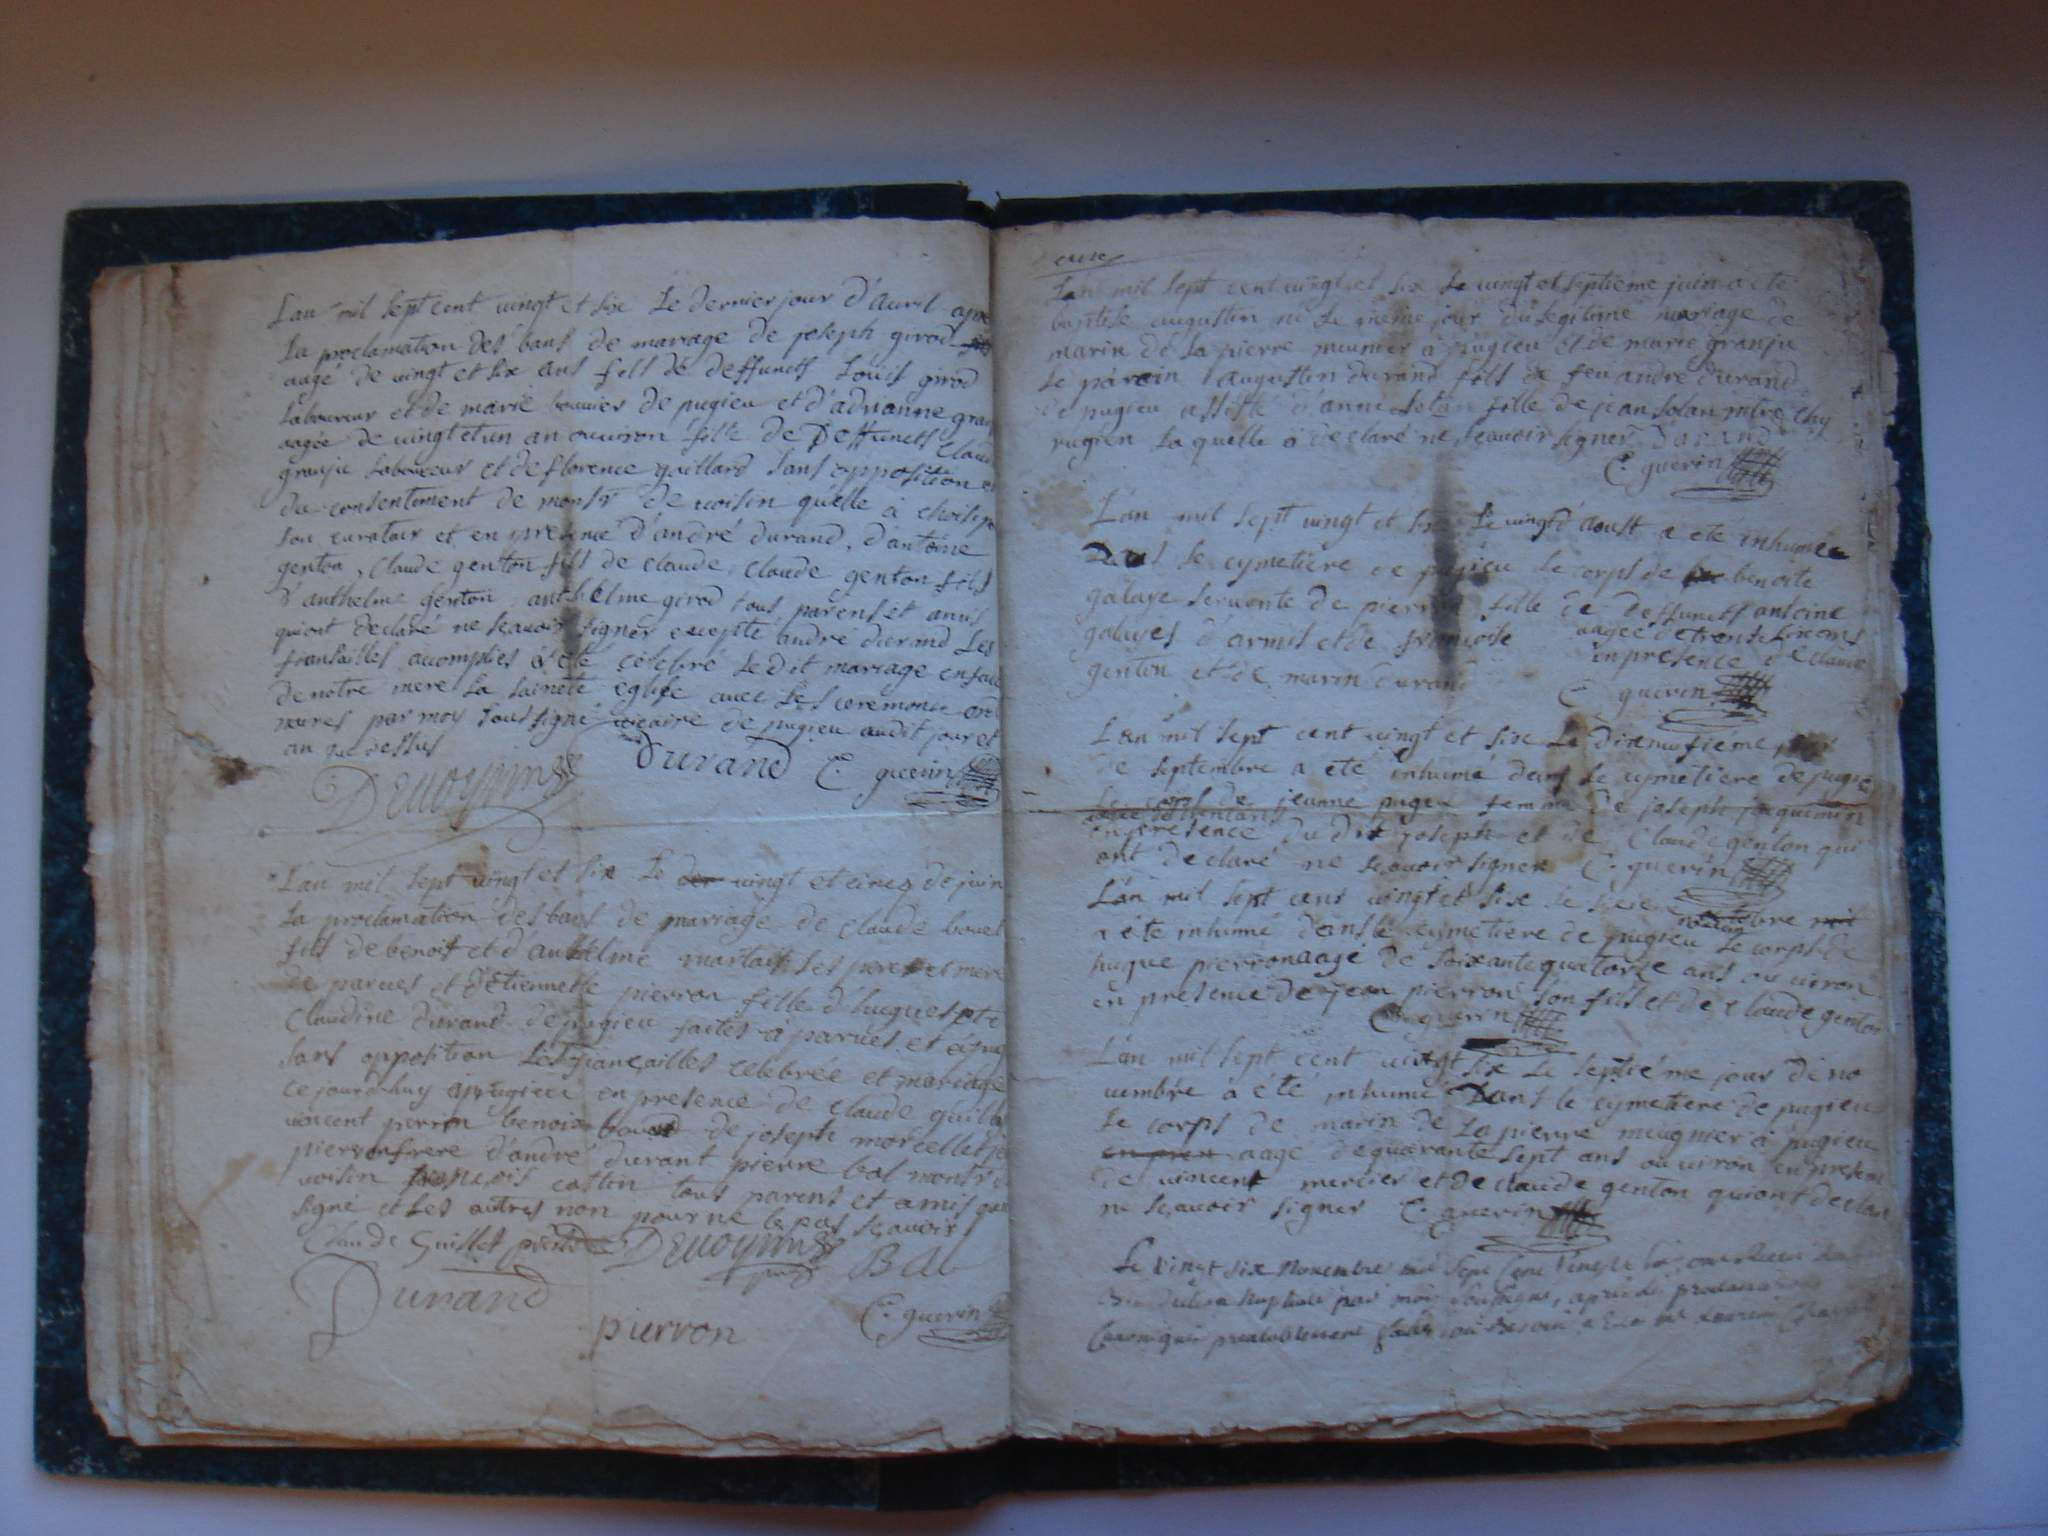 L'an mil sept cent vingt et six le dernier jour d'avril apre
la proclamation des bans de mariage de joseph girod
aagé de vingt et six ans fils de deffuncts Loüis girod
laboureur et de marie bouvier de pugieu et d'adrianne gran
aagée de vingt et un an ouviron fille de Deffuncts Claud
granju laboureur et de florence guillard sans opposition e
du consentiment de monsr de voisin quelle à choisi p
son curatair et en presence d'andré durand, d'antoine
genton, Claude genton fils de claude, claude genton fils
d'anthelme genton anthelme girod tous parens et amis
qui ont declaré ne sçavoir signer excepté andre durand Les
fiansailles acomplies à eté celebré le dit mariage en face
de notre mere la sainète eglise avec les ceremonies ord
naires par moy soussigné vicaire de pugieu audit jour et
an que dessus
Devoyzin Durand C. guerin
L'an mil sept vingt et six le vingt et cinq de juin
la proclamation des bans de mariage de claude bovet
fils de benoit et d'anthelme martait ses pere et mere
de parves et d'etiennette pierron fille d'hugues et
claudine durand de pugieu faites à parves et à pug
sans opposition les fiançailles celebrée et mariage
ce jourdhuy à pugieu en presence de claude guille
vincent perrin benoit bovet de joseph morcellet
pierron frere d'andré durant pierre bal monsr
voisin françois cattin tous parens et amis qui
signé et les autres non pour ne le pas sçavoir
Claude Guillet Devoyzin Bal
Durand
pierron C. guerin
L'an mil sept cent vingt et six le vingt et septiéme juin a eté
baptise augustin né le même jour du legitime mariage de
marin de la pierre meunier à pugieu et de marie granju
le parain augustin durand fils de feu andre durand
de pugieu assisté d'anne solan fille de jean solan
pugieu laquelle à declaré ne sçavoir signer Durand
C. guerin
L'an mil sept vingt et six le vingt d'aoust a eté inhumée
Dans le cymetiere de pugieu le corps de benoite
galaye servante de pierre fille de deffuncts antoine
galayes d'armis et de françoise aagée de trente six ans
genton et de marin durand en presence de claude
C. guerin
L'an mil sept cent vingt et six le dixneufiéme
de septembre a eté inhumé dans le cymetiere de pugie
le corps de jeanne pugeu femme de joseph jaquemin
en presence du dit joseph et de Claude genton qui
ont declaré ne sçavoir signer C. guerin
L'an mil sept cens vingt et six le novembre
a été inhumé dans le cymetiere de pugieu le corps de
hugue pierron aagé de soixante quatorze ans ou viron
en presence de jean pierron son fils et de claude genton
C. guerin
L'an mil sept cent vingt six le septiéme jour de no
vembre à été inhumé Dans le cymetiere de pugieu
le corps de marin de la pierre meugnier à pugieu
aagé de quarante sept ans ou viron en presence
de vincent mercier et de claude genton qui ont declaré
ne sçavoir signer C. guerin
Le vingt six Novembre mil sept cent vingt six
nuptiale par moy soussigné, après les proclamations
canoniques prealablement faites